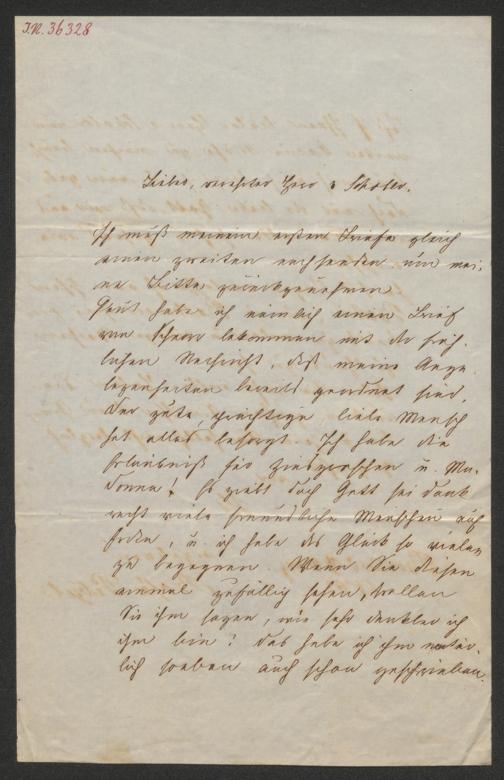 I.N. 36328
Lieber, verehrter Herr v Schober.
Ich muß meinem ersten Briefe gleich
einen zweiten nachsenden um mei-
ne Bitte zurückzunehmen
Heut habe ich nämlich einen Brief
von bekommen mit der fröh-
lichen Nachricht, daß meine Ange-
legenheiten bereits geordnet sind.
Der gute, prächtige liebe Mensch
hat alles besorgt. Ich habe die
Erlaubniß für u. Ma-
donna! Es giebt doch Gott sei Dank
recht viele freundliche Menschen auf
Erden, u. ich habe das Glück so vielen
zu begegnen. Wenn Sie diesen
einmal zufällig sehen, wollen
Sie ihm sagen, wie sehr dankbar ich
ihm bin? Das habe ich ihm natür-
lich soeben auch schon geschrieben.